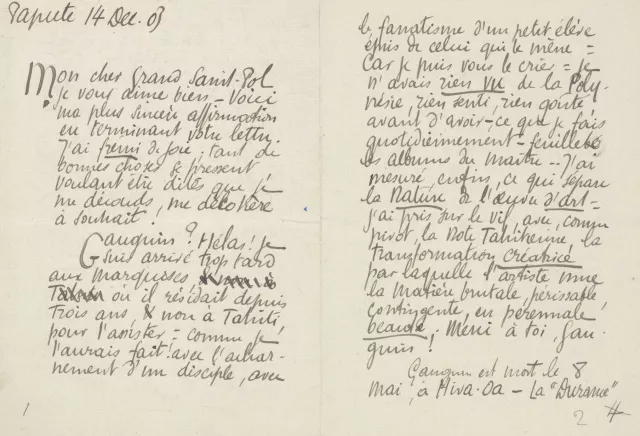 Papeete 14 Dec. 03
Mon cher Grand Saint-Pol
je vous aime bien – Voici
ma plus sincère affirmation
en terminant votre lettre.
J'ai fremi de joie; tant de
bonnes choses se pressent
voulant être dites que je
me découds, me
à souhait!
Gauguin? Hélas! je
suis arrivé trop tard
aux Marquises
où il résidait depuis
Trois ans, non à Tahiti
pour l'assister = comme je
l'aurais fait! avec l'achar-
nement d'un disciple, avec
1
le fanatisme d'un petit élève
épris de celui qui le mène =
Car je puis vous le crier = je
n'avais rien vu de la Poly-
nésie, rien senti, rien goûté
avant d'avoir – ce que je fais
quotidiennement – feuilleté
les albums du Maître -- J'ai
mesuré, enfin, ce qui sépare
la Nature de l'œuvre d'art –
j'ai pris sur le vif, avec, comme
pivot, la Note Tahitienne, la
transformation créatrice
par laquelle l'artiste mue
la Matière brutale, périssable,
contingente, en pérennale
beauté; Merci à toi, Gau-
guin!
Gauguin est mort le 8
Mai, à Hiva-Oa – La "Durance"
2